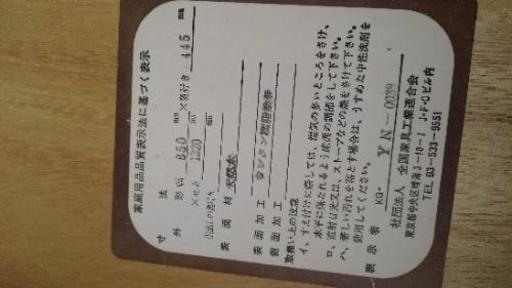 家庭用品品質表示法に基づく表示
寸法
外形 幅 880 mm ×奥行き 445 mm
×高さ 1320 mm
表面材 天然木
表面加工 ウレタン樹脂塗装
側面加工
取扱い上の注意
イ、すえ付けに際しては、湿気の多いところをさけ、
水平に保たれるよう床面の調節をして下さい。
ロ、直射日光又は、ストーブなどの熱をさけて下さい。
ハ、著しい汚れを落とす場合は、うすめた中性洗剤を
使用してください。
表示者 KG- YN-0039
社団法人 全国家具工業連合会
東京都中央区 3-10-1 J・F・Cビル内
TEL 03-533-5651